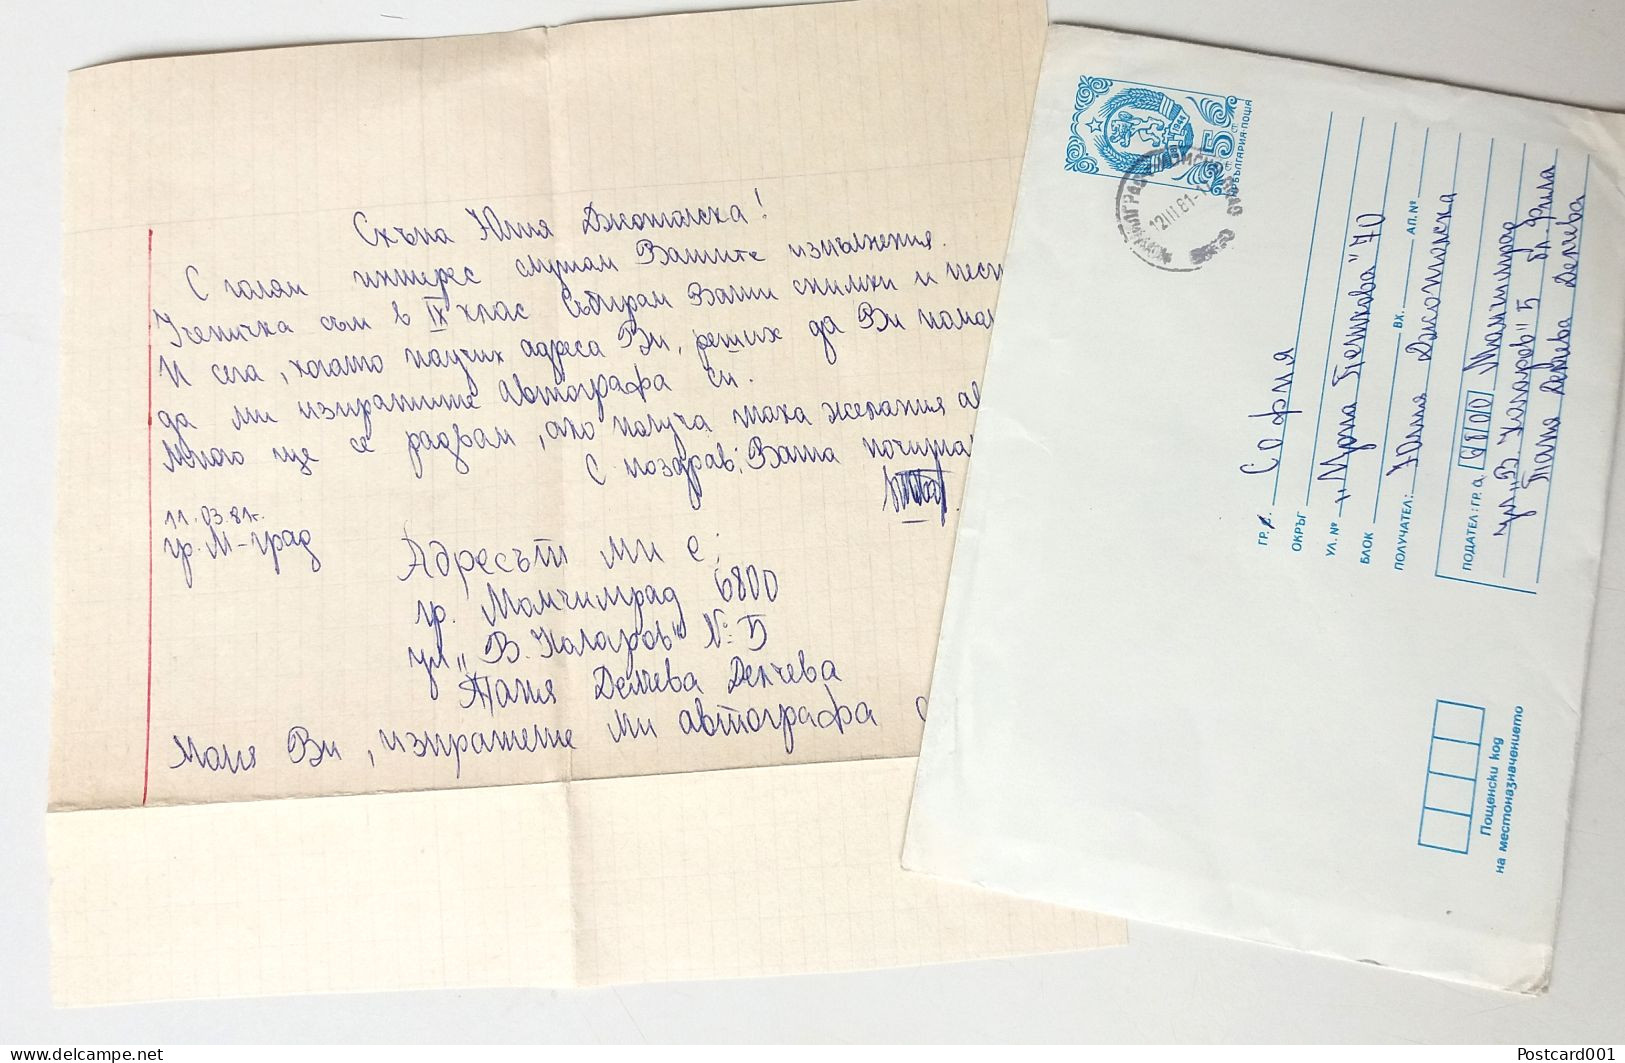 Скъпа Юлия Джотолска!
С голям интерес слушам Вашите изпълнения.
Ученичка съм в IX клас Събирам Ваши снимки и
И сега, когато научих адреса Ви, реших да Ви
да ми изпратите автографа си.
Много ще се радвам, ако получа така желания
С поздрав: Ваша
11.03.81г.
гр. М-град
Адресът ми е:
гр. Момчилград 6800
ул „В. Коларов" №: 5
Таня Делчева Делчева
Моля Ви, изпратете ми автографа
1944
5 СТ
НРБЪЛГАРИЯ·ПОЩА
12III81
ГР/С. София
ОКРЪГ
УЛ. № „Ирна Петкова" 70
БЛОК ВХ. АП.№
ПОЛУЧАТЕЛ: Юлия Джотолска
ПОДАТЕЛ: ГР.С. 6800 Момчилград
ул „В. Коларов" 5
Таня Делчева Делчева
Пощенски код
на местоназначението
Postcard001